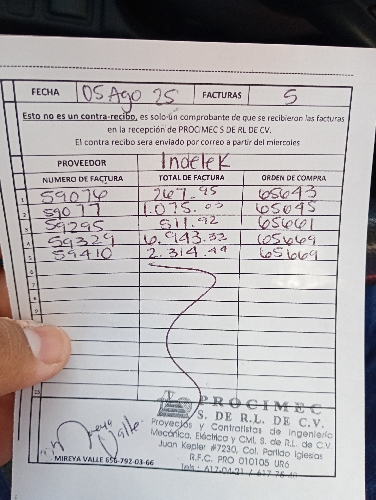 FECHA 05 Ago 25 FACTURAS 5
Esto no es un contra-recibo, es solo un comprobante de que se recibieron las facturas
en la recepción de PROCIMEC S DE RL DE CV.
El contra recibo sera enviado por correo a partir del miercoles
PROVEEDOR Inoelek
NUMERO DE FACTURA TOTAL DE FACTURA ORDEN DE COMPRA
1 59076 267.95 65643
2 59077 1.075.03 65645
3 59295 511.92 65661
4 59329 6.943.32 65669
5 59410 2.314.44 65669
6
7
8
9
PROCIMEC
S. DE R.L. DE C.V.
Proyectos y Contratistas de Ingeniería
Mecánica, Eléctrica y CMI, S. de R.L. de C.V.
Juan Kepler #7230, Col. Partido Iglesias
R.F.C. PRO 010105 UR6
Tels.: 617-04-21 / 617-76-
Mireya Valle
MIREYA VALLE 656-792-03-66